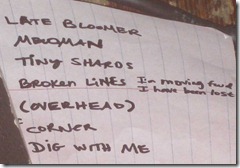 LATE BLOOMER
MADMAN
TINY SHARDS
BROKEN LINES I'm moving
I have been lost
(OVERHEAD)
CORNER
DIG WITH ME